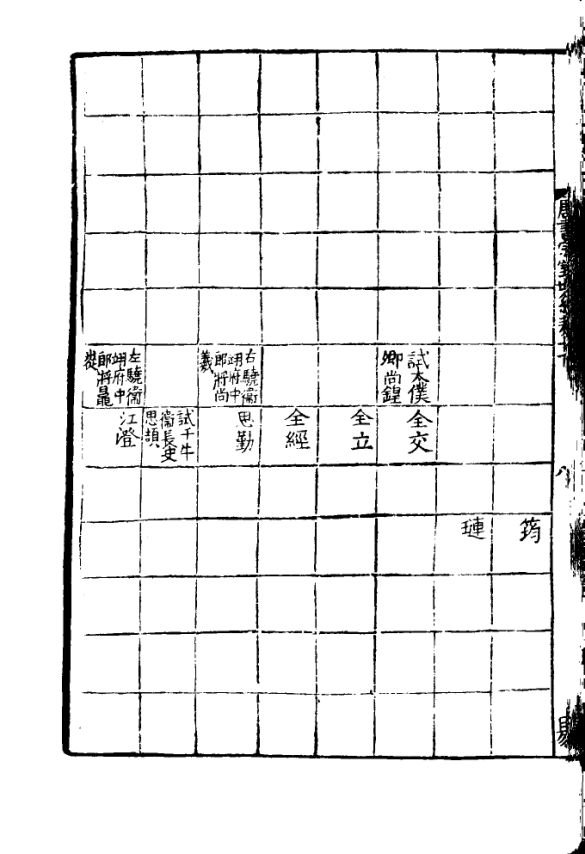 筠
璉
試太僕
卿尚鍠
全交
全立
全經
右驍衛
翊府中
郎將尚
義
思勤
試千牛
衛長史
思頊
左驍衛
翊府中
郎將
江澄
八